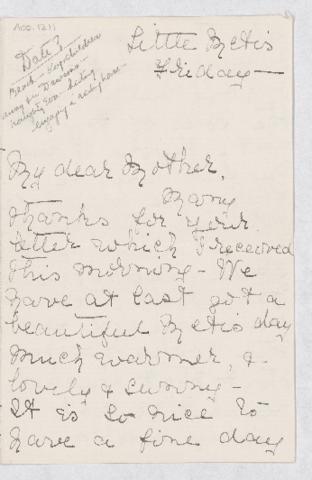 Acc. 1211
Date?
Beach
away on
naughty
engaging
Little Metis
Friday—
My dear Mother,
Many
thanks for your
letter which I received
this morning – We
have at last got a
beautiful Metis day
much warmer, &
lovely & sunny –
It is so nice to
have a fine day